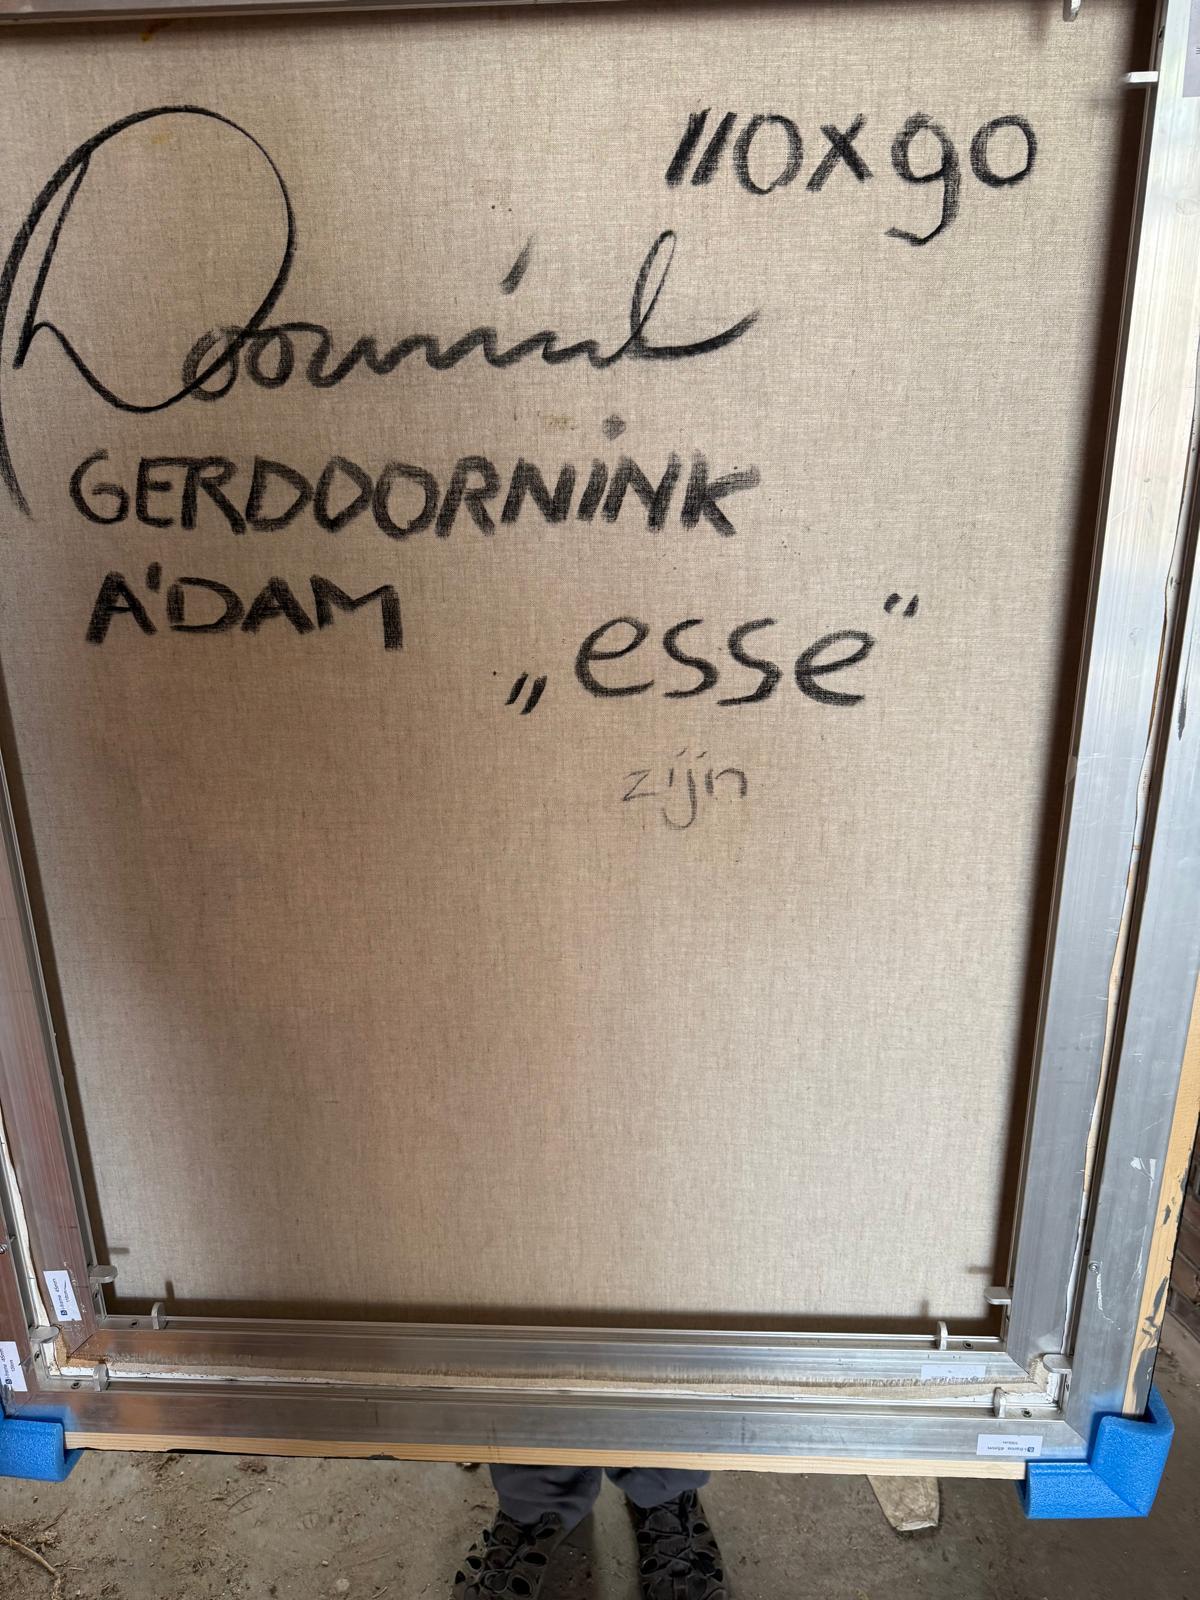 110x90
Doornink
GERDOORNINK
A'DAM
„esse"
zijn